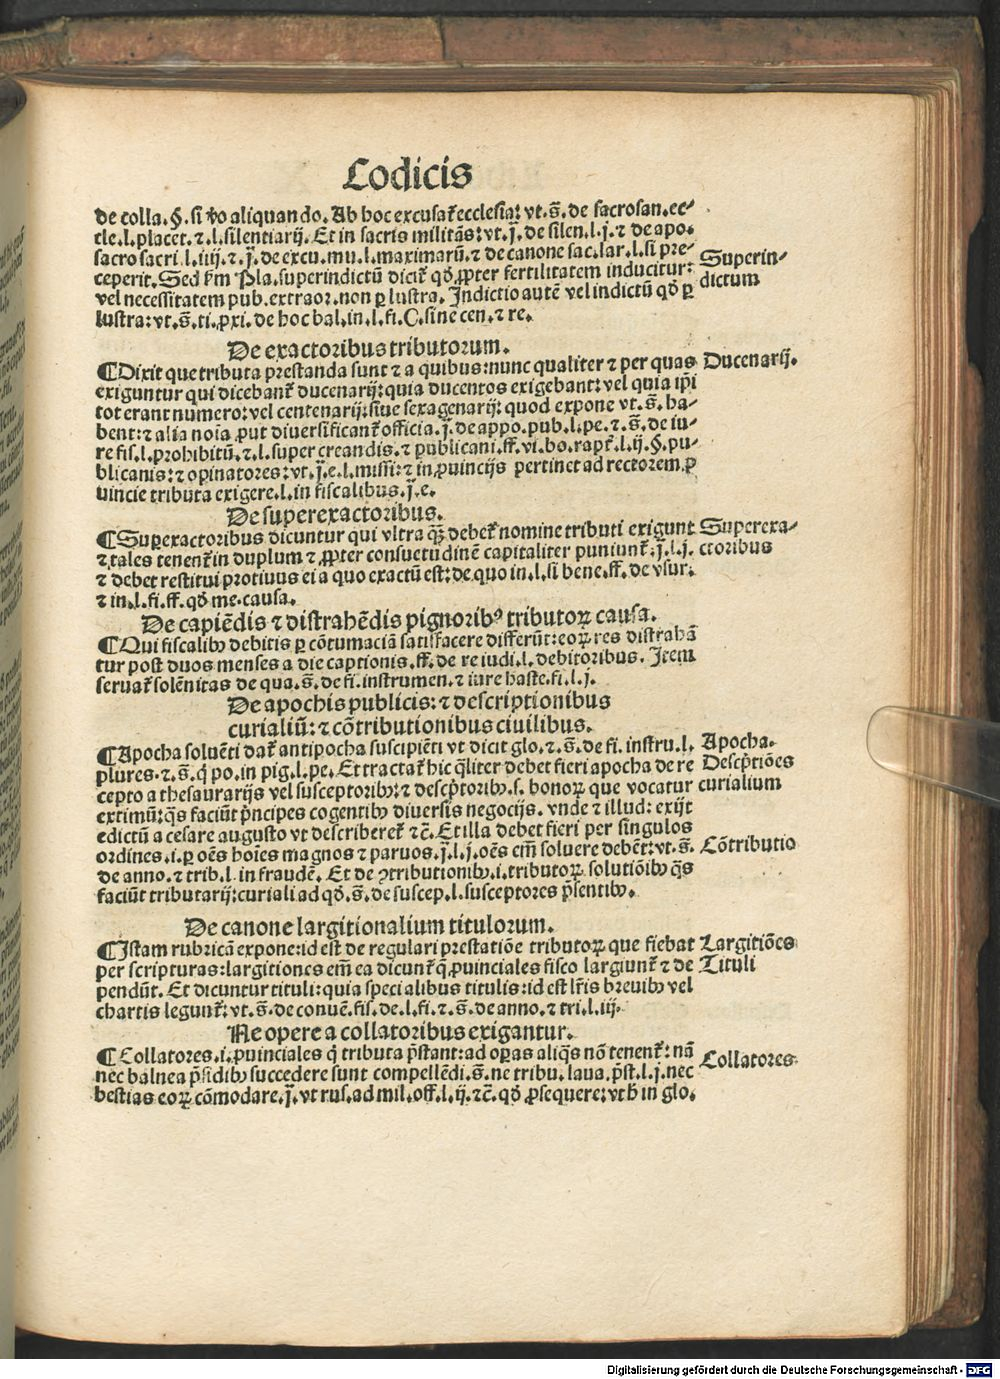 Codicis
de colla. §. si v̄o aliquando. Ab hoc excusat᷑ ecclesia: vt. s̄. de sacrosan. ec⸗
cle. l. placet. ⁊. l. silentiarij. Et in sacris militās: vt. j̄. de silen. l. j. ⁊ de apo⸗
sacro sacri. l. iiij. ⁊. j̄. de excu. mu. l. maximarū. ⁊ de canone sac. lar. l. si pre⸗
ceperit. Sed s̄m Pla. superindictū dicit᷑ qď ꝓpter fertilitatem inducitur:
vel necessitatem pub. extraor. non ꝑ lustra. Indictio autē vel indictū qď ꝑ
lustra: vt. s̄. ti. ꝓxi. de hoc bal. in. l. fi. C. sine cen. ⁊ re.
Superin⸗
dictum
De exactoribus tributorum.
¶ Dixit que tributa prestanda sunt ⁊ a quibus: nunc qualiter ⁊ per quas
exiguntur qui dicebant᷑ ducenarij: quia ducentos exigebant: vel quia ip̄i
tot erant numero: vel centenarij: siue sexagenarij: quod expone vt. s̄. ha⸗
bent: ⁊ alia noīa ꝓut diuersificant᷑ officia. j̄. de appo. pub. l. pe. ⁊. s̄. de iu⸗
re fis. l. prohibitū. ⁊. l. super creandis. ⁊ publicani. ff. vi. bo. rapt᷑. l. ij. §. pu⸗
blicanis: ⁊ opinatores: vt. j̄. e. l. missi: ⁊ in ꝓuincijs pertinet ad rectorem ꝓ
uincie tributa exigere. l. in fiscalibus. j̄. e.
Ducenarij.
De superexactoribus.
¶ Suꝑexactoribus dicuntur qui vltra qꝫ̄ debet᷑ nomine tributi exigunt
⁊ tales tenent᷑ in duplum ⁊ ꝓpter consuetudinē capitaliter puniunt᷑. j̄. l. j.
⁊ debet restitui protinus ei a quo exactū est: de quo in. l. si bene. ff. de vsur.
⁊ in. l. fi. ff. qď me. causa.
Superexa⸗
ctoribus
De capiēdis ⁊ distrahēdis pignorib⁹ tributoꝝ causa.
¶ Qui fiscalibꝰ debitis ꝑ cōtumaciā satisfacere differūt: eoꝝ res distrahā
tur post duos menses a die captionis. ff. de re iudi. l. debitoribus. Item
seruat᷑ solēnitas de qua. s̄. de fi. instrumen. ⁊ iure haste. fi. l. j.
De apochis publicis: ⁊ descriptionibus
curialiū: ⁊ cōtributionibus ciuilibus.
¶ Apocha soluēti dat᷑ antipocha suscipiēti vt dicit glo. ⁊. s̄. de fi. instru. l.
plures. ⁊. s̄. q̇ po. in pig. l. pe. Et tractat᷑ hic q̄liter debet fieri apocha de re
cepto a thesaurarijs vel susceptoribꝰ: ⁊ descp̄toribꝰ. s. bonoꝝ que vocatur
extimū: q̄s faciūt p̄ncipes cogentibꝰ diuersis negocijs. vnde ⁊ illud: exijt
edictū a cesare augusto vt describeret᷑ ⁊c̄. Et illa debet fieri per singulos
ordines. i. ꝑ oēs hoīes magnos ⁊ paruos. j̄. l. j. oēs em̄ soluere debēt: vt. s̄.
de anno. ⁊ trib. l. in fraudē. Et de ꝯtributionibꝰ. i. tributoꝝ solutiōibꝰ q̄s
faciūt tributarij: curiali ad qď. s̄. de suscep. l. susceptores p̄sentibꝰ.
Apocha.
Descp̄tiōes
curialium
Cōtributio
De canone largitionalium titulorum.
¶ Istam rubricā expone: id est de regulari prestatiōe tributoꝝ que fiebat
per scripturas: largitiones em̄ ea dicunt᷑ q̄ ꝓuinciales fisco largiunt᷑ ⁊ de
pendūt. Et dicuntur tituli: quia specialibus titulis: id est lr̄is breuibꝰ vel
chartis legunt᷑: vt. s̄. de conuē. fis. de. l. fi. ⁊. s̄. de anno. ⁊ tri. l. iij.
Largitiōes
Tituli
Ne opere a collatoribus exigantur.
¶ Collatores. i. ꝓuinciales q̇ tributa p̄stant: ad oꝑas aliq̄s nō tenent᷑: nā
nec balnea p̄sidibꝰ succedere sunt compellēdi. s̄. ne tribu. laua. p̄st. l. j. nec
bestias eoꝝ cōmodare. j̄. vt rus. ad mil. off. l. ij. ⁊c̄. qď ꝓsequere: vt h̄ in glo.
Collatores
Digitalisierung gefördert durch die Deutsche Forschungsgemeinschaft - DFG